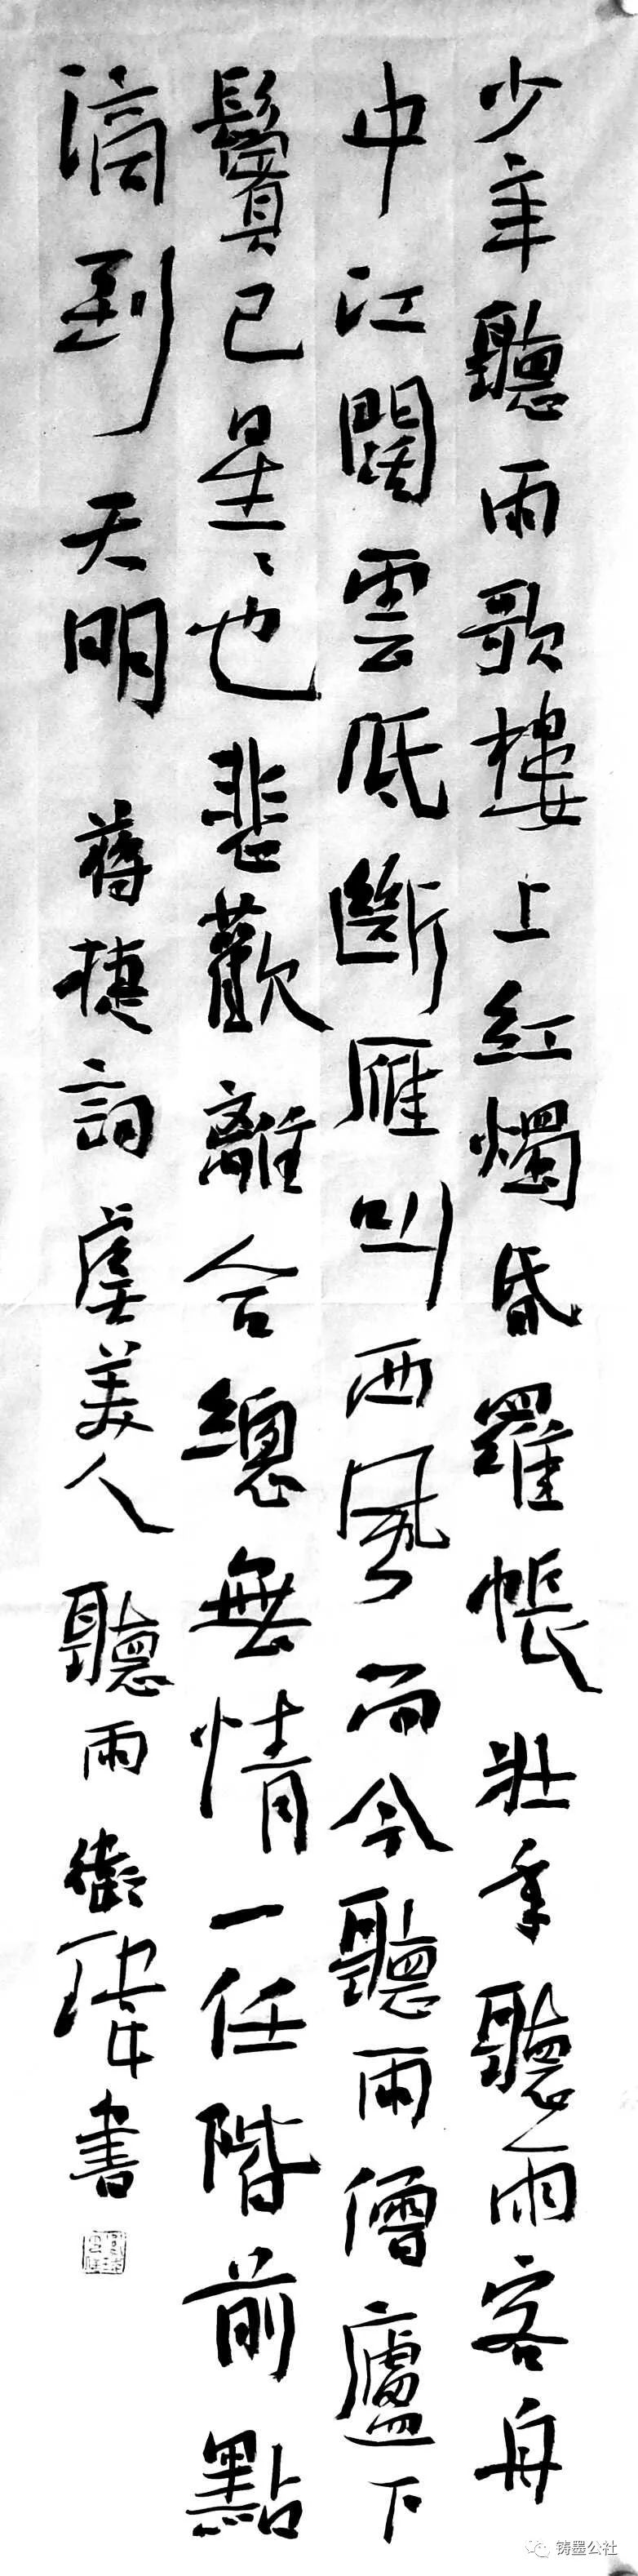 少年聽雨歌樓上紅燭昏羅帳壯年聽雨客舟
中江闊雲低斷雁叫西風而今聽雨僧廬下
鬢已星〻也悲歡離合總無情一任階前點
滴到天明 蔣捷詞虞美人 聽雨 衛 書
铸墨公社